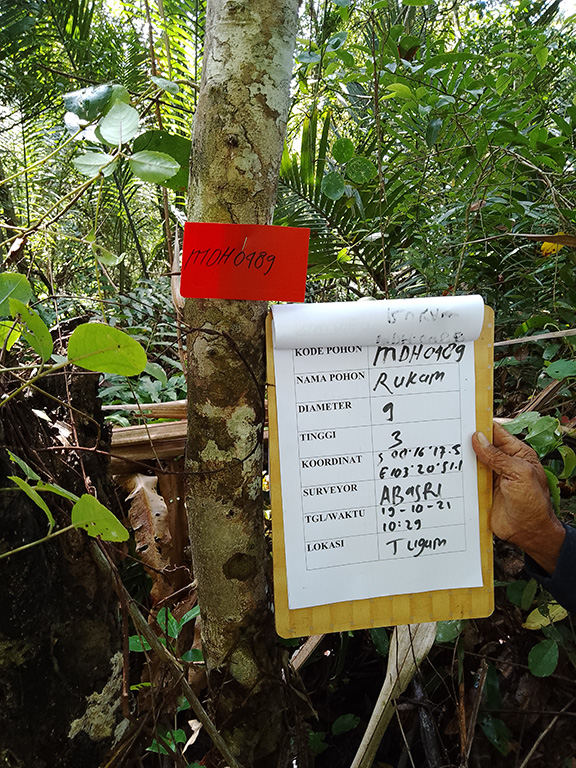 MDH0489
KODE POHON MDH0489
NAMA POHON Rukam
DIAMETER 9
TINGGI 3
KOORDINAT S 01°16'17.5
E 103°20'51.1
SURVEYOR ABASRI
TGL/WAKTU 19-10-21
10:29
LOKASI Tugum